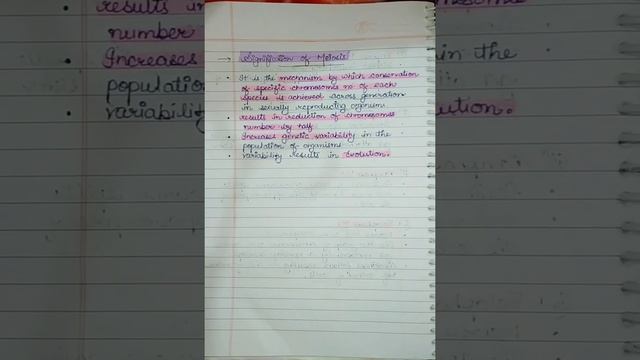 → Signification of Meiosis
• It is the mechanism by which conservation
of specific chromosomes no of each
species is achieved across generation
in sexually reproducing organism.
• results in reduction of chromosomes
number by half.
• Increases genetic variability in the
population of organisms
• variability results in evolution.